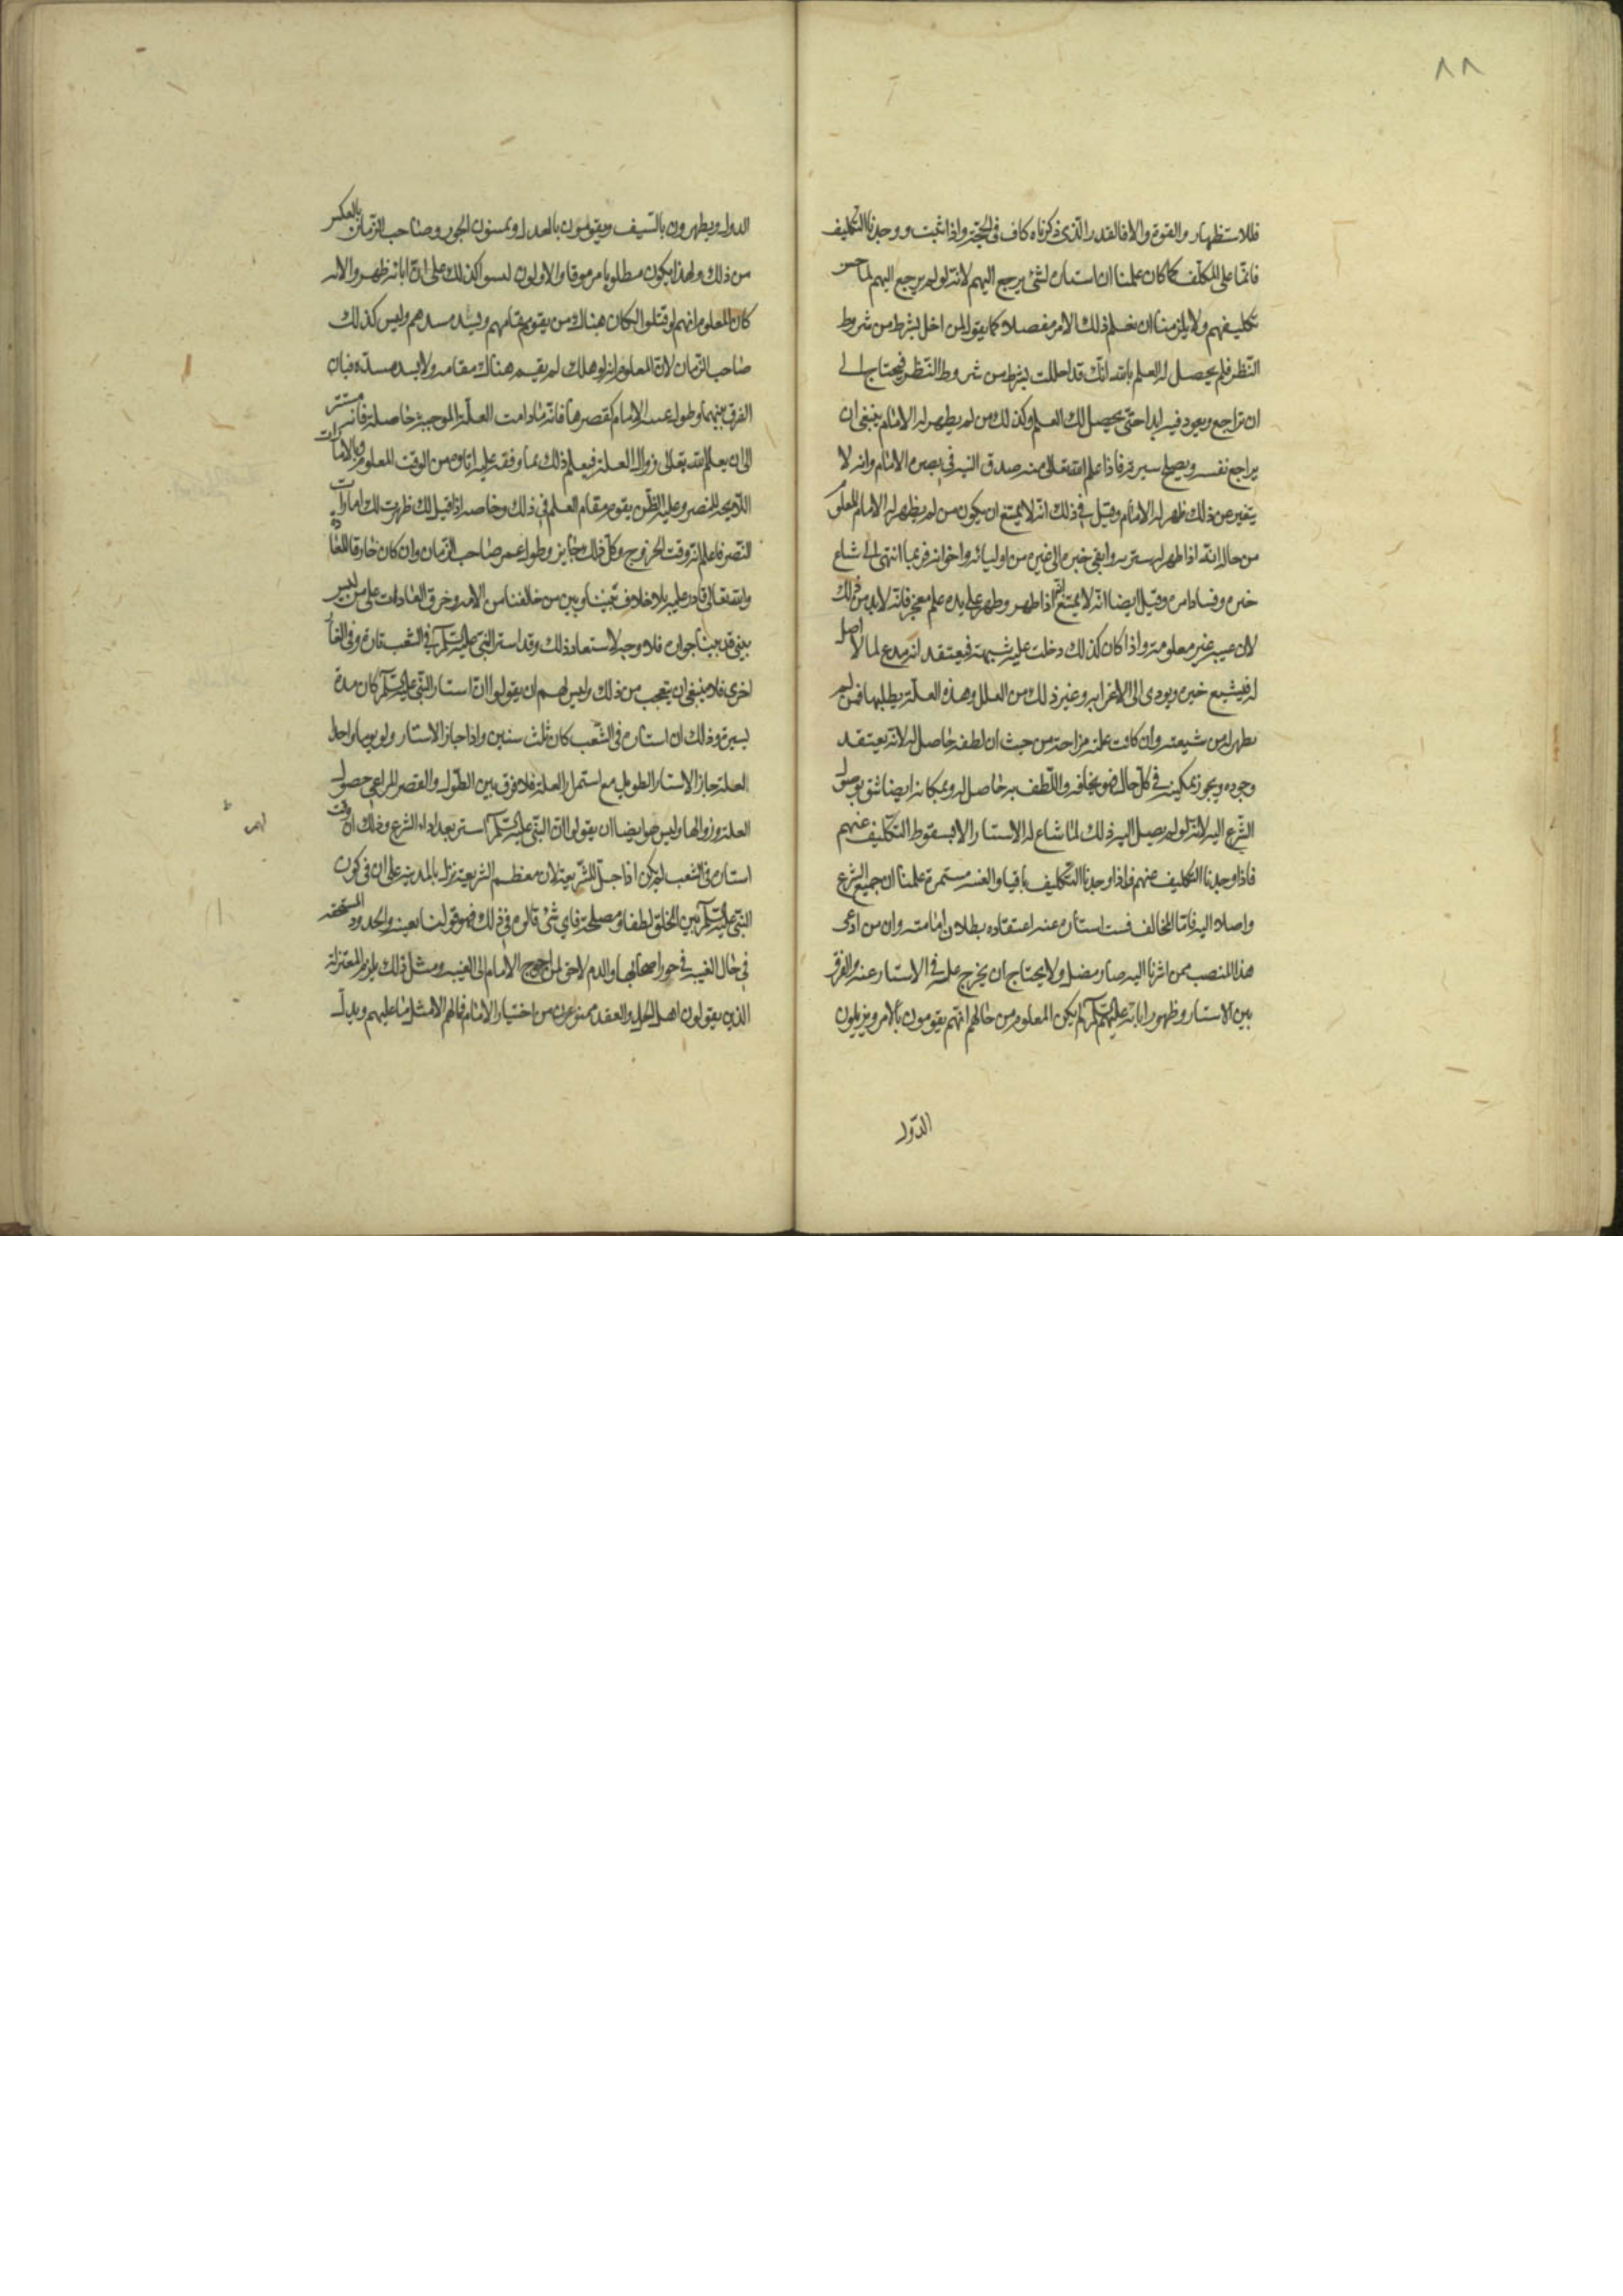 ٨٨
فللاستظهار والقوة والا فالقدر الذى ذكرناه كاف فى الحجة واذا ثبت ووجدنا التكليف
قائما على المكلف كما كان علمنا ان استتاره لشئ يرجع اليهم لانه لو لم يرجع اليهم لما حسن
تكليفهم ولا يلزمنا ان نعلم ذلك الامر مفصلا كما يقول لمن اخل بشرط من شروط
النظر فلم يحصل له العلم بالله انك قد اخللت بشرط من شروط النظر فتحتاج الى
ان تراجع ويعود فيه ابدا حتى يحصل لك العلم وكذلك من لم يظهر له الامام ينبغى ان
يراجع نفسه ويصلح سيرته فاذا علم الله تعالى منه صدق النيه فى نصره الامام وانه لا
يتغير عن ذلك ظهر له الامام وقيل فى ذلك انه لا يمتنع ان يكون من لم يظهر له الامام المعلوم
من حاله انه اذا ظهر له ستر والقى خبره الى غيره من اوليائه واخوانه فربما انتهى الى شاع
خبره وفساد امره وقيل ايضا انه لا يمتنع انه اذا ظهر وظهر على يده علم معجز فانه لا بد من ذلك
لان عينه غير معلومة واذا كان كذلك دخلت عليه شبهة فيعتقد انه مدع لما لا اصل
له فيشيع خبره ويودى الى الاغراء به وغير ذلك من العلل وهذه العلة يطلبها فمن لم
يظهر له من شيعته وان كانت علته مزاحة من حيث ان لطفه حاصل له لانه يعتقد
وجوده ويجوز تمكينه فى كل حال فهو يخافه واللطف به حاصل له وبمكانه ايضا يثق بوصول
الشرع اليه لانه لو لم يصل اليه ذلك لما شاع له الاستتار الا بسقوط التكليف عنهم
فاذا وجدنا التكليف عنهم فاذا وجدنا التكليف باقيا والغيبه مستمرة علمنا ان جميع الشرع
واصلا اليه فاما المخالف فسبب استتاره عنه اعتقاده بطلان امامته وان من ادعى
هذا المنصب ممن اشرنا اليه صار مضل ولا يحتاج ان يخرج علته فى الاستتار عنه والفرق
بين الاستتار وظهور ابائه عليهم السلم لم يكن المعلوم من حالهم انهم يقومون بالامر ويزيلون
الدول
الدول ويظهرون بالسيف ويقومون بالعدل ويميتون الجور وصاحب الزمان بالعكس
من ذلك ولهذا يكون مطلوبا مرموقا والاولون ليسوا كذلك على ان اباءه ظهروا لانه
كان المعلوم انهم لو قتلوا لكان هناك من يقوم مقامهم ويسد مسدهم وليس كذلك
صاحب الزمان لان المعلوم انه لو هلك لم يقم هناك مقامه ولا يسد مسده فبان
الفرق بينهما وطول غيبة الامام كقصرها فانه ما دامت العلة الموجبة حاصلة فانه مستتر
الى ان يعلم الله تعالى زوال العلة فيعلم ذلك بما وقفه عليه اباؤه من الوقت المعلوم وبالامارات
اللايحه للنصر وغلبه الظن يقوم مقام العلم فى ذلك وخاصه اذا قيل لك ظهرت لك امارات
النصر فاعلم انه وقت الخروج وكل ذلك جايز وطول عمر صاحب الزمان وان كان خارقا للعادة
والله تعالى قادر عليه بلا خلاف بيننا وبين من خالفنا من الامه وخرق العادات على من ليس
بنبى قد بينا جوازه فلا وجه لاستبعاد ذلك وقد استتر النبى عليه السلم فى الشعب تارة وفى الغار
اخرى فلا ينبغى ان يتعجب من ذلك وليس لهم ان يقولوا ان استتار النبى عليه السلم كان مدة
يسيرة وذلك ان استتاره فى الشعب كان ثلث سنين واذا جاز الاستتار ولو يوما واحدا
لعلة جاز الاستتار الطويل مع استمرار العلة فلا فرق بين الطول والقصر المراعى حصول
العلة وزوالها وليس هو ايضا ان يقولوا ان النبى عليه السلم استتر بعد اداء الشرع وذلك ان وقت
استتاره فى الشعب لم يكن ادا جل الشريعة لان معظم الشريعة نزل بالمدينة على ان فى كون
النبى عليه السلم بين الخلق لطفا ومصلحة فاى شئ قالوه فى ذلك فهو قولنا بعينه والحدود المستحقه
فى حال الغيبه فى جور اصحابها والدم لاحق لمن احوج الامام الى الغيبه ومثل ذلك يلزم المعتزلة
الذين يقولون اهل الحل والعقد ممنوعون من اختيار الامام فما لهم الا مثل ما عليهم ويدل